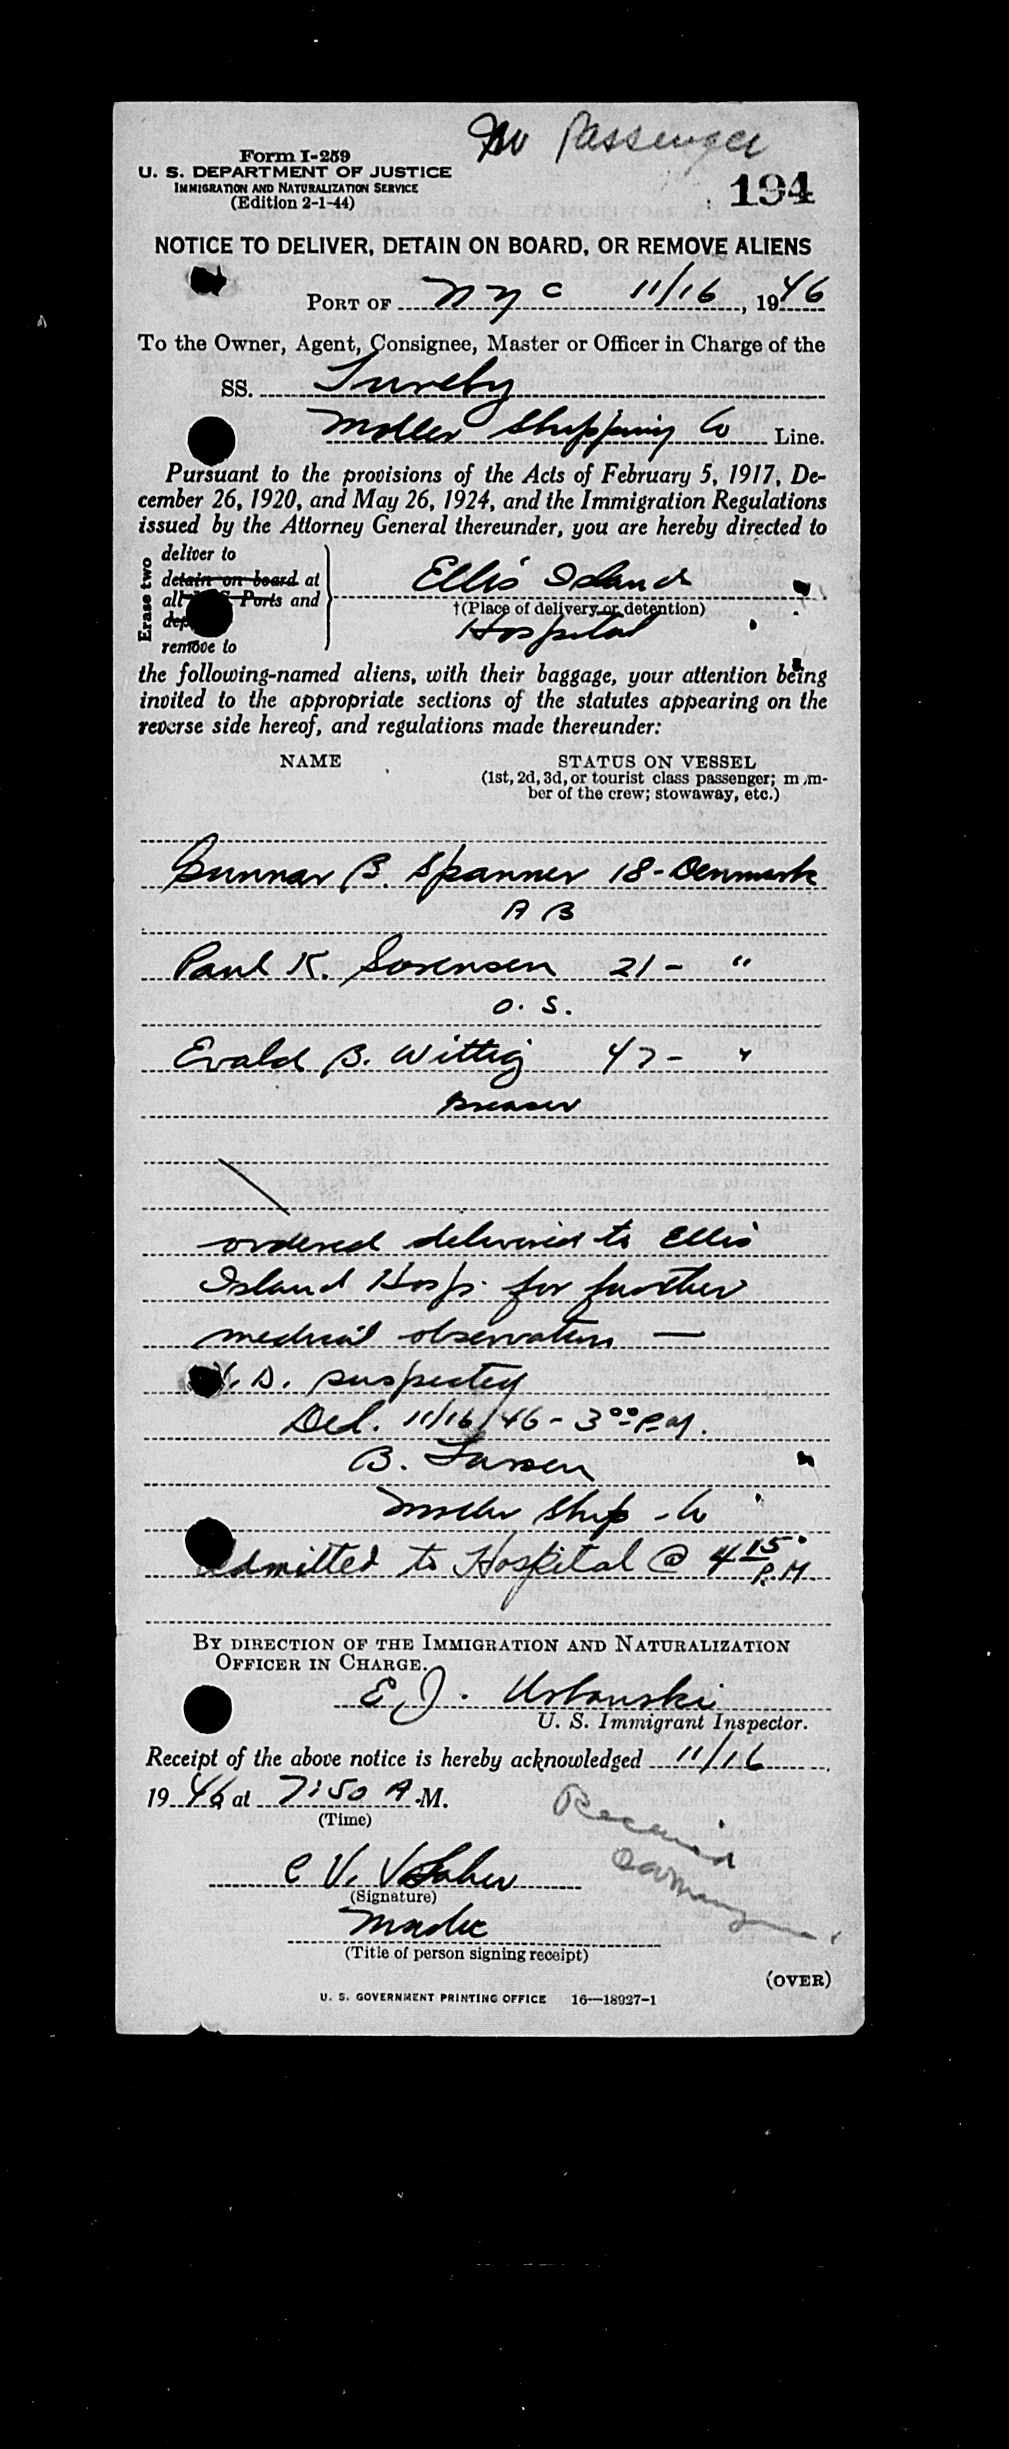 No Passenger
Form I-259
U. S. DEPARTMENT OF JUSTICE
IMMIGRATION AND NATURALIZATION SERVICE
(Edition 2-1-44)
194
NOTICE TO DELIVER, DETAIN ON BOARD, OR REMOVE ALIENS
PORT OF NYC 11/16, 1946
To the Owner, Agent, Consignee, Master or Officer in Charge of the
SS. Tureby
Moller Shipping Co Line.
Pursuant to the provisions of the Acts of February 5, 1917, De-
cember 26, 1920, and May 26, 1924, and the Immigration Regulations
issued by the Attorney General thereunder, you are hereby directed to
Erase two
deliver to
detain on board at
all Ports and
remove to
Ellis Island
†(Place of delivery or detention)
Hospital
the following-named aliens, with their baggage, your attention being
invited to the appropriate sections of the statutes appearing on the
reverse side hereof, and regulations made thereunder:
NAME STATUS ON VESSEL
(1st, 2d, 3d, or tourist class passenger; mem-
ber of the crew; stowaway, etc.)
Gunnar B. Spanner 18 - Denmark
A B
Paul K. Sorensen 21 - "
O. S.
Evald B. Wittig 47 - "
Greaser
ordered delivered to Ellis
Island Hosp. for further
medical observation —
V. D. suspected
Del. 11/16/46 - 3 00 P.M.
B. Larsen
Moller Ship. Co
Admitted to Hospital @ 4 15 P.M
BY DIRECTION OF THE IMMIGRATION AND NATURALIZATION
OFFICER IN CHARGE.
E. J. Urbanski
U. S. Immigrant Inspector.
Receipt of the above notice is hereby acknowledged 11/16
1946 at 7:50 A.M.
(Time)
Received
C V.
(Signature)
(Title of person signing receipt)
(OVER)
U. S. GOVERNMENT PRINTING OFFICE 16—18927-1